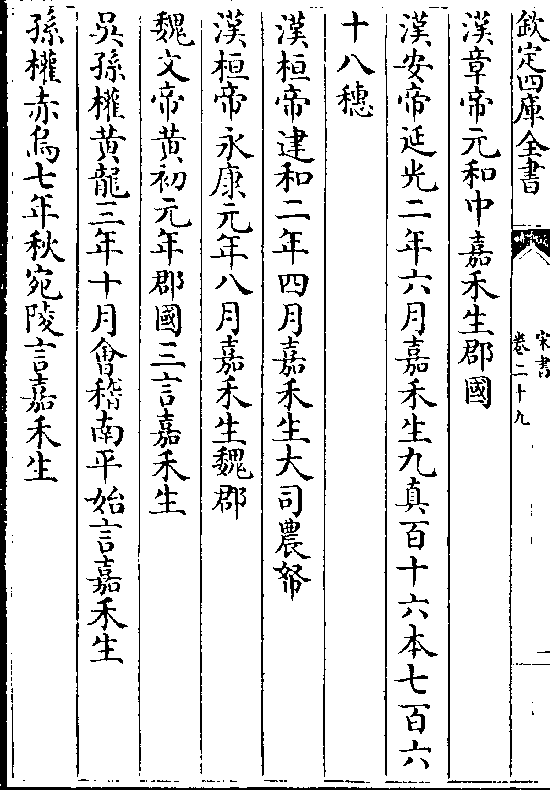 欽定四庫全書
宋書
卷二十九
一
漢章帝元和中嘉禾生郡國
漢安帝延光二年六月嘉禾生九真百十六本七百六
十八穗
漢桓帝建和二年四月嘉禾生大司農帑
漢桓帝永康元年八月嘉禾生魏郡
魏文帝黃初元年郡國三言嘉禾生
吳孫權黃龍三年十月會稽南平始言嘉禾生
孫權赤烏七年秋宛陵言嘉禾生